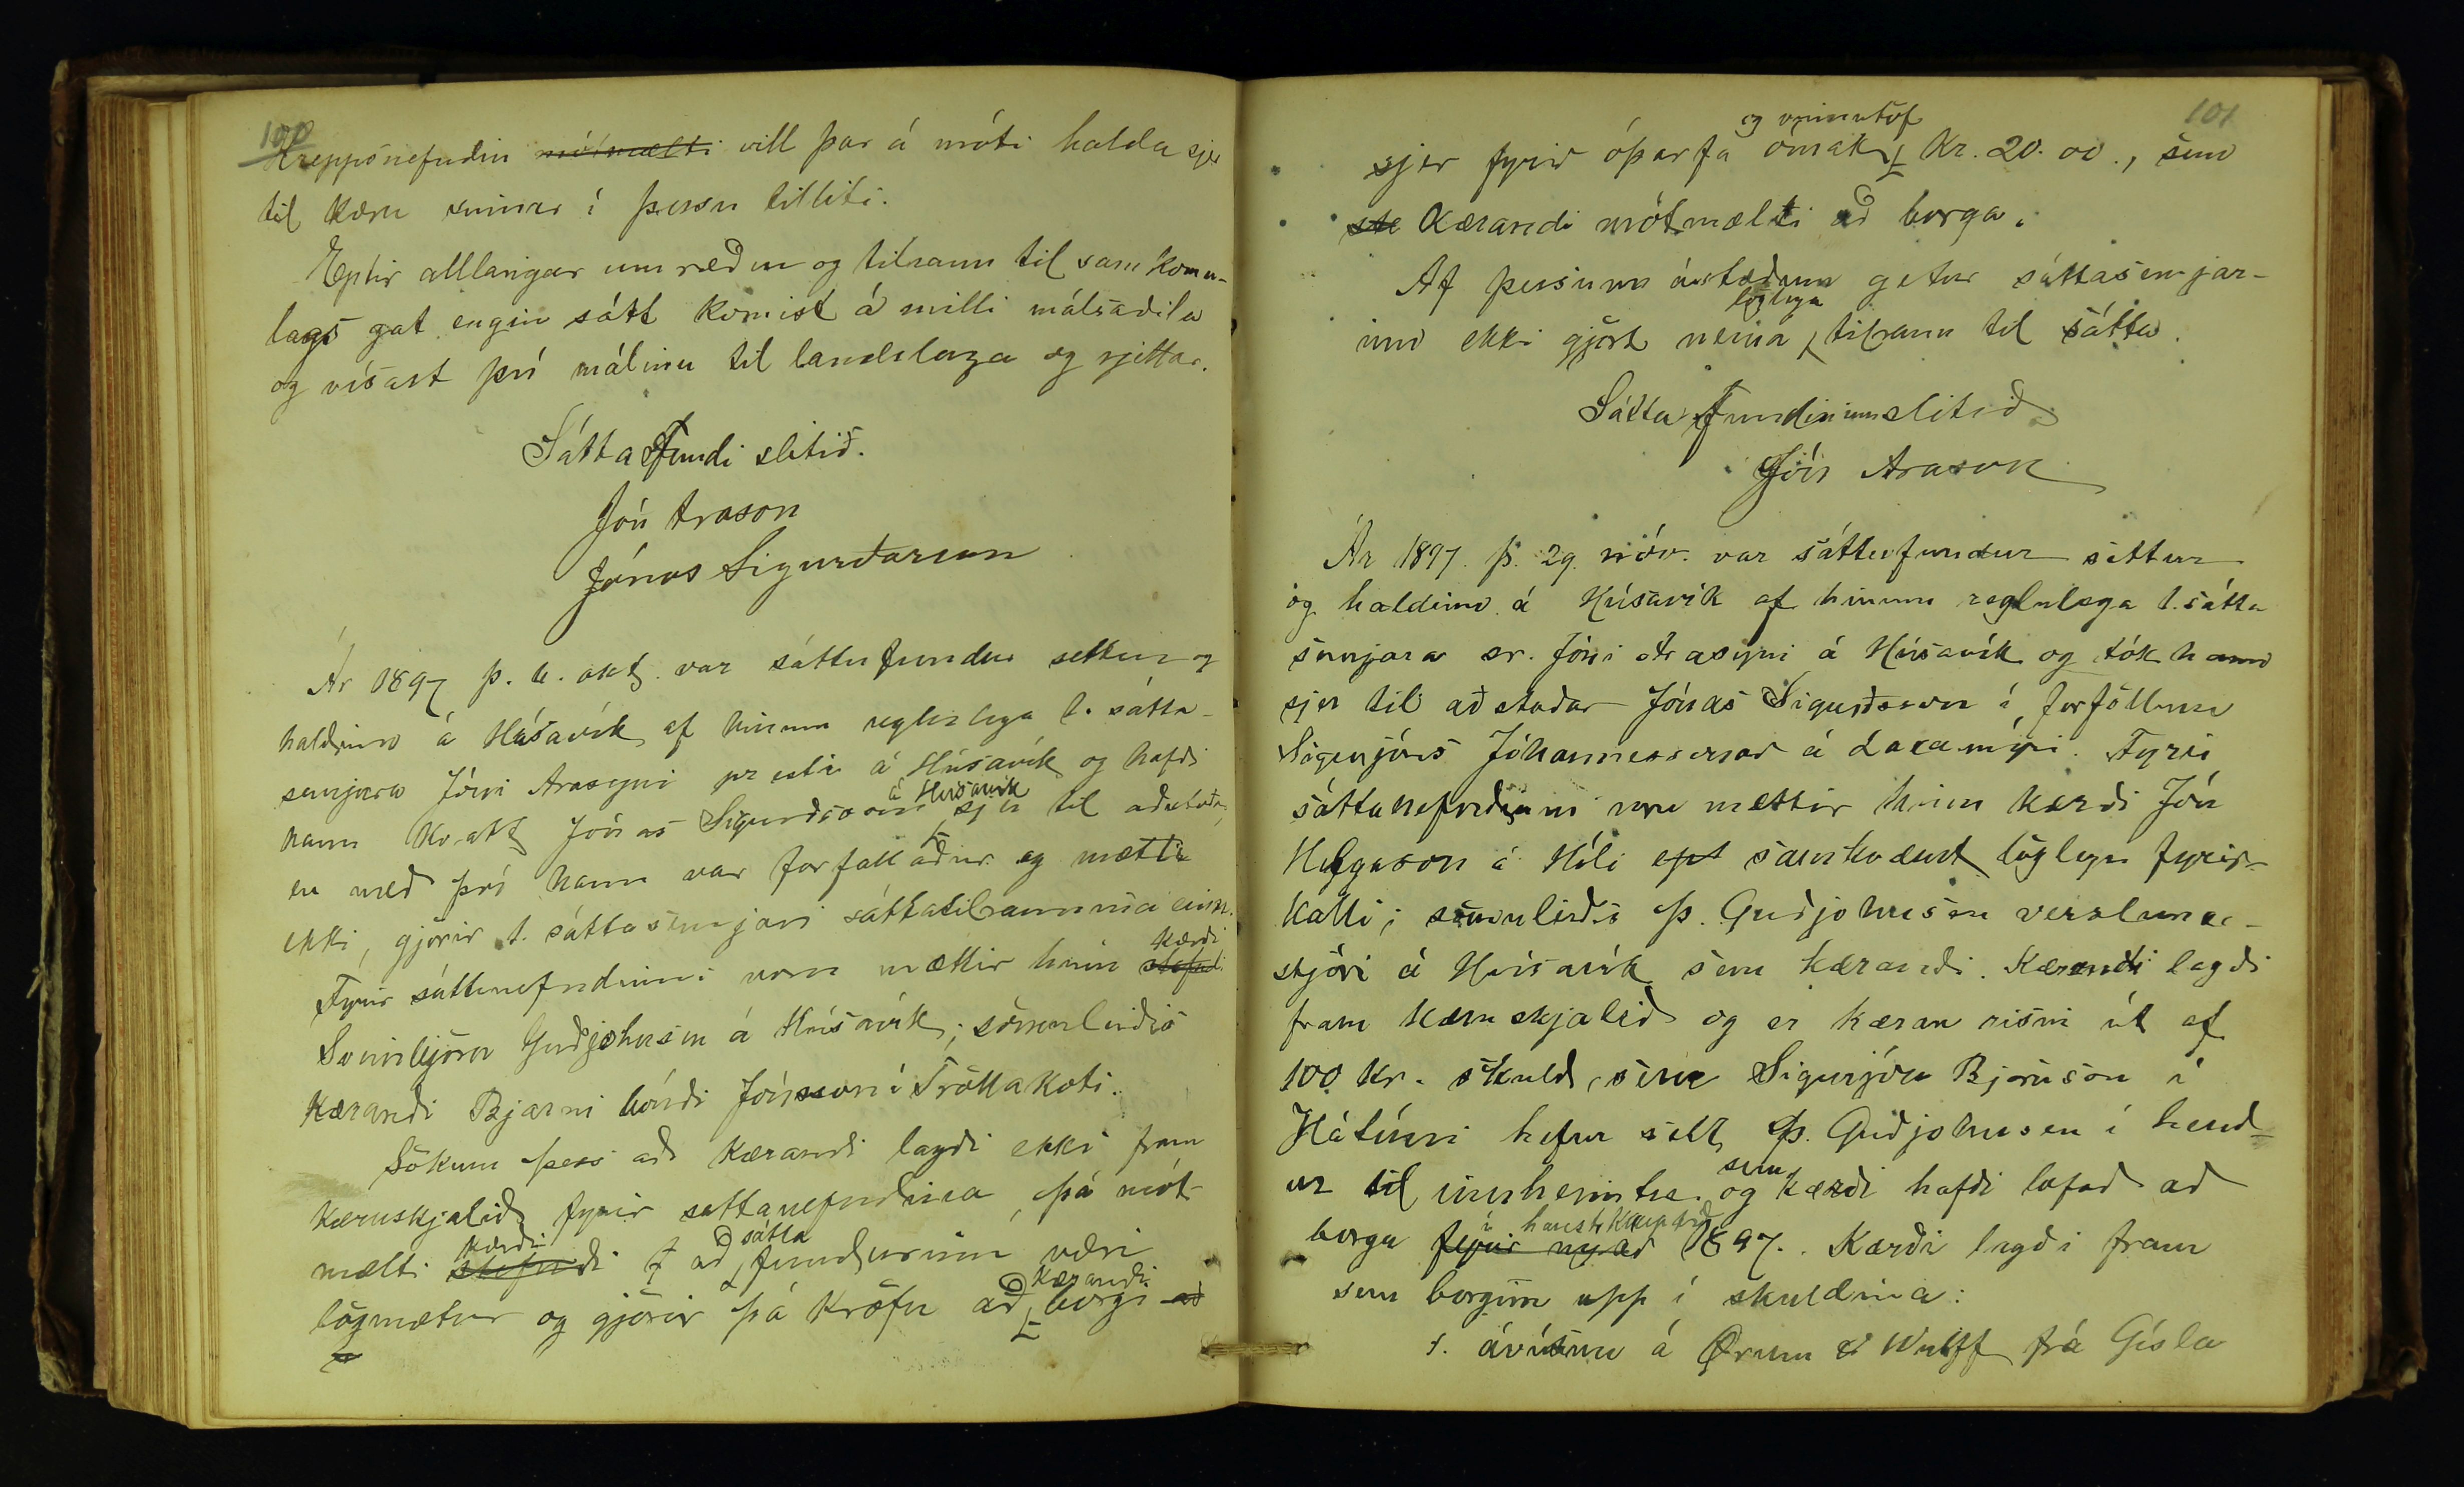 100
Hreppsnefndin mótmælti vill þar á móti halda sjer
til kæru sinnar í þessu tilliti.
Eptir alllangar umræður og tilraun til samkomu-
lags gat engin sátt komist á milli málsaðila
og vísast því málinu til landslaga og rjettar.
Sátta fundi slitið.
Jón Arason
Jónas Sigurðarson
Ár 1897 þ. 6. okt. var sáttafundur settur og
haldinn á Húsavík af hinum reglulega 1. sátta-
semjara Jóni Arasyni presti á Húsavík og hafði
á Húsavík
hann kvatt Jónas Sigurðsson sjer til aðstoðar,
en með því hann var forfallaður og mætti
ekki, gjörir 1. sáttasemjari sáttatilraunina einn.
kærði
Fyrir sáttanefndinni voru mættir hinn stefndi
Sveinbjörn Guðjohnsen á Húsavík; sömuleiðis
kærandi Bjarni bóndi Jónsson í Tröllakoti.
Sökum þess að kærandi lagði ekki fram
kæruskjalið fyrir sattanefndina, þá mót-
kærði sátta
mælti stefndi að fundurinn væri
kærandi
lögmætur og gjörir þá kröfu að borgi að
101
og ómakstöf
sjer fyrir óþarfa ómak Kr. 20.00., sem
ste kærandi mótmælti að borga.
Af þessum ástæðum getur sáttasemjar-
löglega
inn ekki gjört neina tilraun til sátta.
Sátta fundinum slitið
Jón Arason
Ár 1897. þ. 29. nóv. var sáttafundur settur
og haldinn á Húsavík af hinum reglulega 1. sátta
semjara sr. Jóni Arasyni á Húsavík og tók hann
sjer til aðstoðar Jónas Sigurðsson í forföllum
Sigurjóns Jóhannessonar á Laxamýri. Fyrir
sáttanefndinni voru mættir hinn kærði Jón
Helgason á Hóli ept samkvæmt löglegu fyrir-
kalli; sömuleiðis Þ. Guðjohnsen verzlunar-
stjóri á Húsavík sem kærandi. Kærandi lagði
fram kæruskjalið og er kæran risin út af
100 kr. skuld, sem Sigurjón Bjarnson í
Hátúni hefur selt Þ. Guðjohnsen í hend-
sem
ur til innheimtu og kærði hafði lofað að
í haustkauptíð
borga fyrir nýár 1897. Kærði lagði fram
sem borgun upp í skuldina:
1. ávísun á Ørum & Wulff frá Gísla